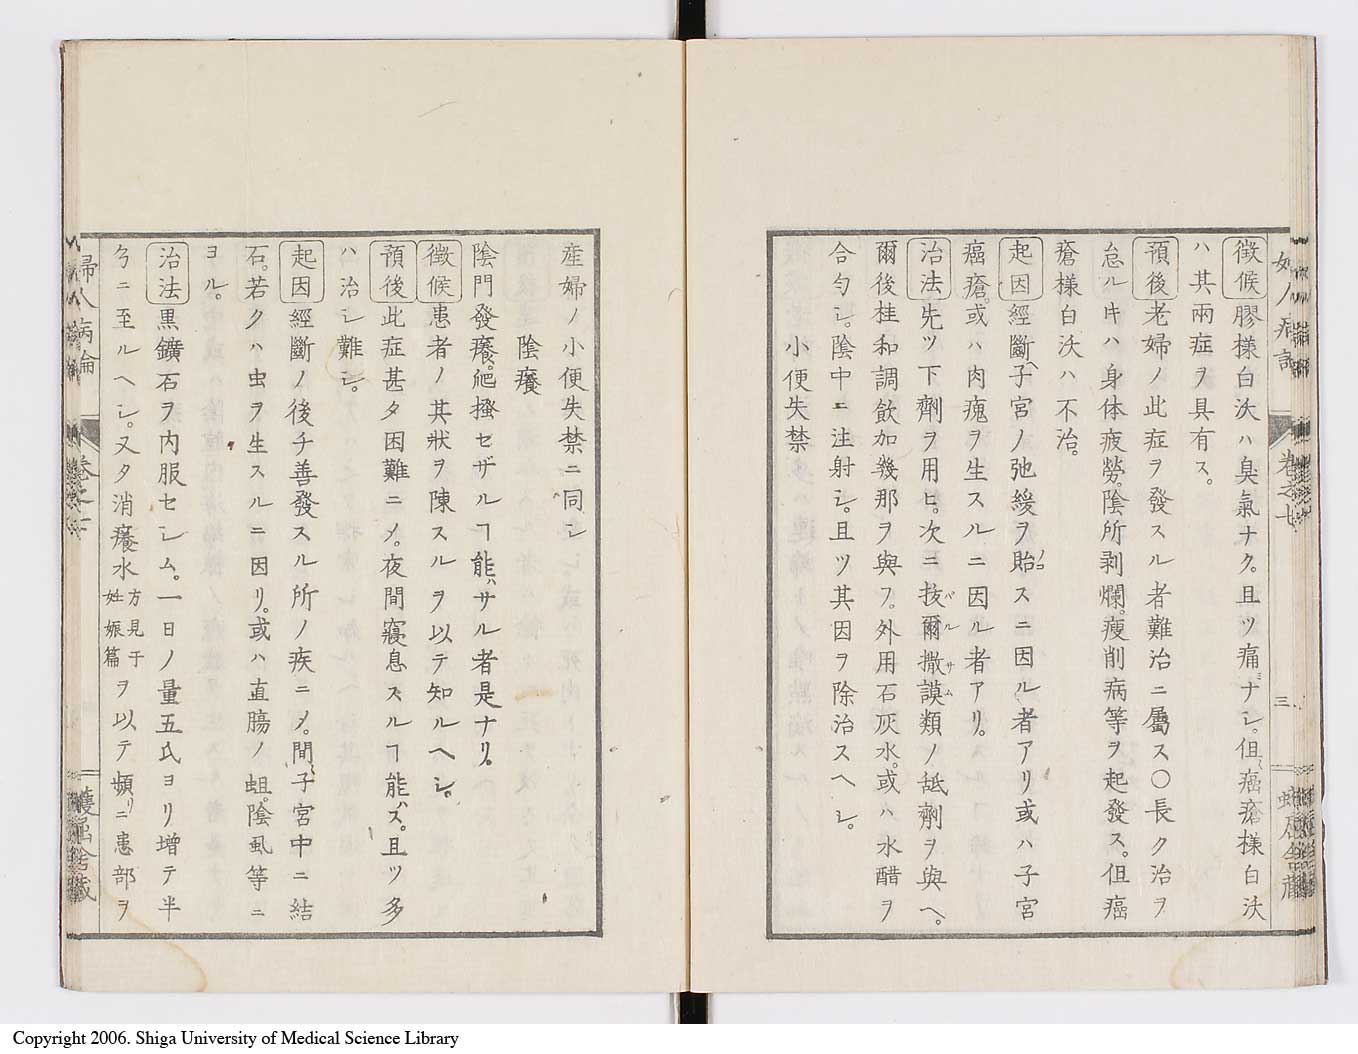 徵候膠樣白沃ハ臭氣ナク。且ツ痛ミナシ。但シ癌瘡樣白沃
ハ其兩症ヲ具有ス。
預後老婦ノ此症ヲ發スル者難治ニ屬ス〇長ク治ヲ
怠ル𪜈ハ身体疲勞。陰所剥爛。瘦削病等ヲ起發ス。但癌
瘡樣白沃ハ不治。
起因經斷ヘ子宮ノ弛緩ヲ貽ノコスニ因ル者アリ或ハ子宮
癌瘡。或ハ肉瘣ヲ生スルニ因ル者アリ。
治法先ツ下劑ヲ用ヒ。次ニ抜爾撒謨バルサム類ノ舐劑ヲ與ヘ。
爾後桂和調飲加幾那ヲ與フ。外用石灰水。或ハ水醋ヲ
合匀シ。陰中ニ注射シ。且ツ其因ヲ除治スヘシ。
小便失禁
産婦ノ小便失禁ニ同シ
陰癢
陰門發癢。爬搔セザルヿ能ハサル者是ナリ。
徵候患者ノ其狀ヲ陳スルヲ以テ知ルヘシ。
預後此症甚タ困難ニノ。夜間寢息スルヿ能ハズ。且ツ多
ハ治シ難シ。
起因經斷ノ後チ善發スル所ノ疾ニノ。間ミ子宮中ニ結
石。若クハ虫ヲ生スルニ因リ。或ハ直膓ノ蛆。陰虱等ニ
ヨル。
治法黒鑛石ヲ内服セシム。一日ノ量五氏ヨリ增テ半
勺ニ至ルヘシ。又タ消癢水方見于姙娠篇ヲ以テ頻リニ患部ヲ
婦人病論
卷之七
三
蠖屈舍藏
Copyright 2006. Shiga University of Medical Science Library